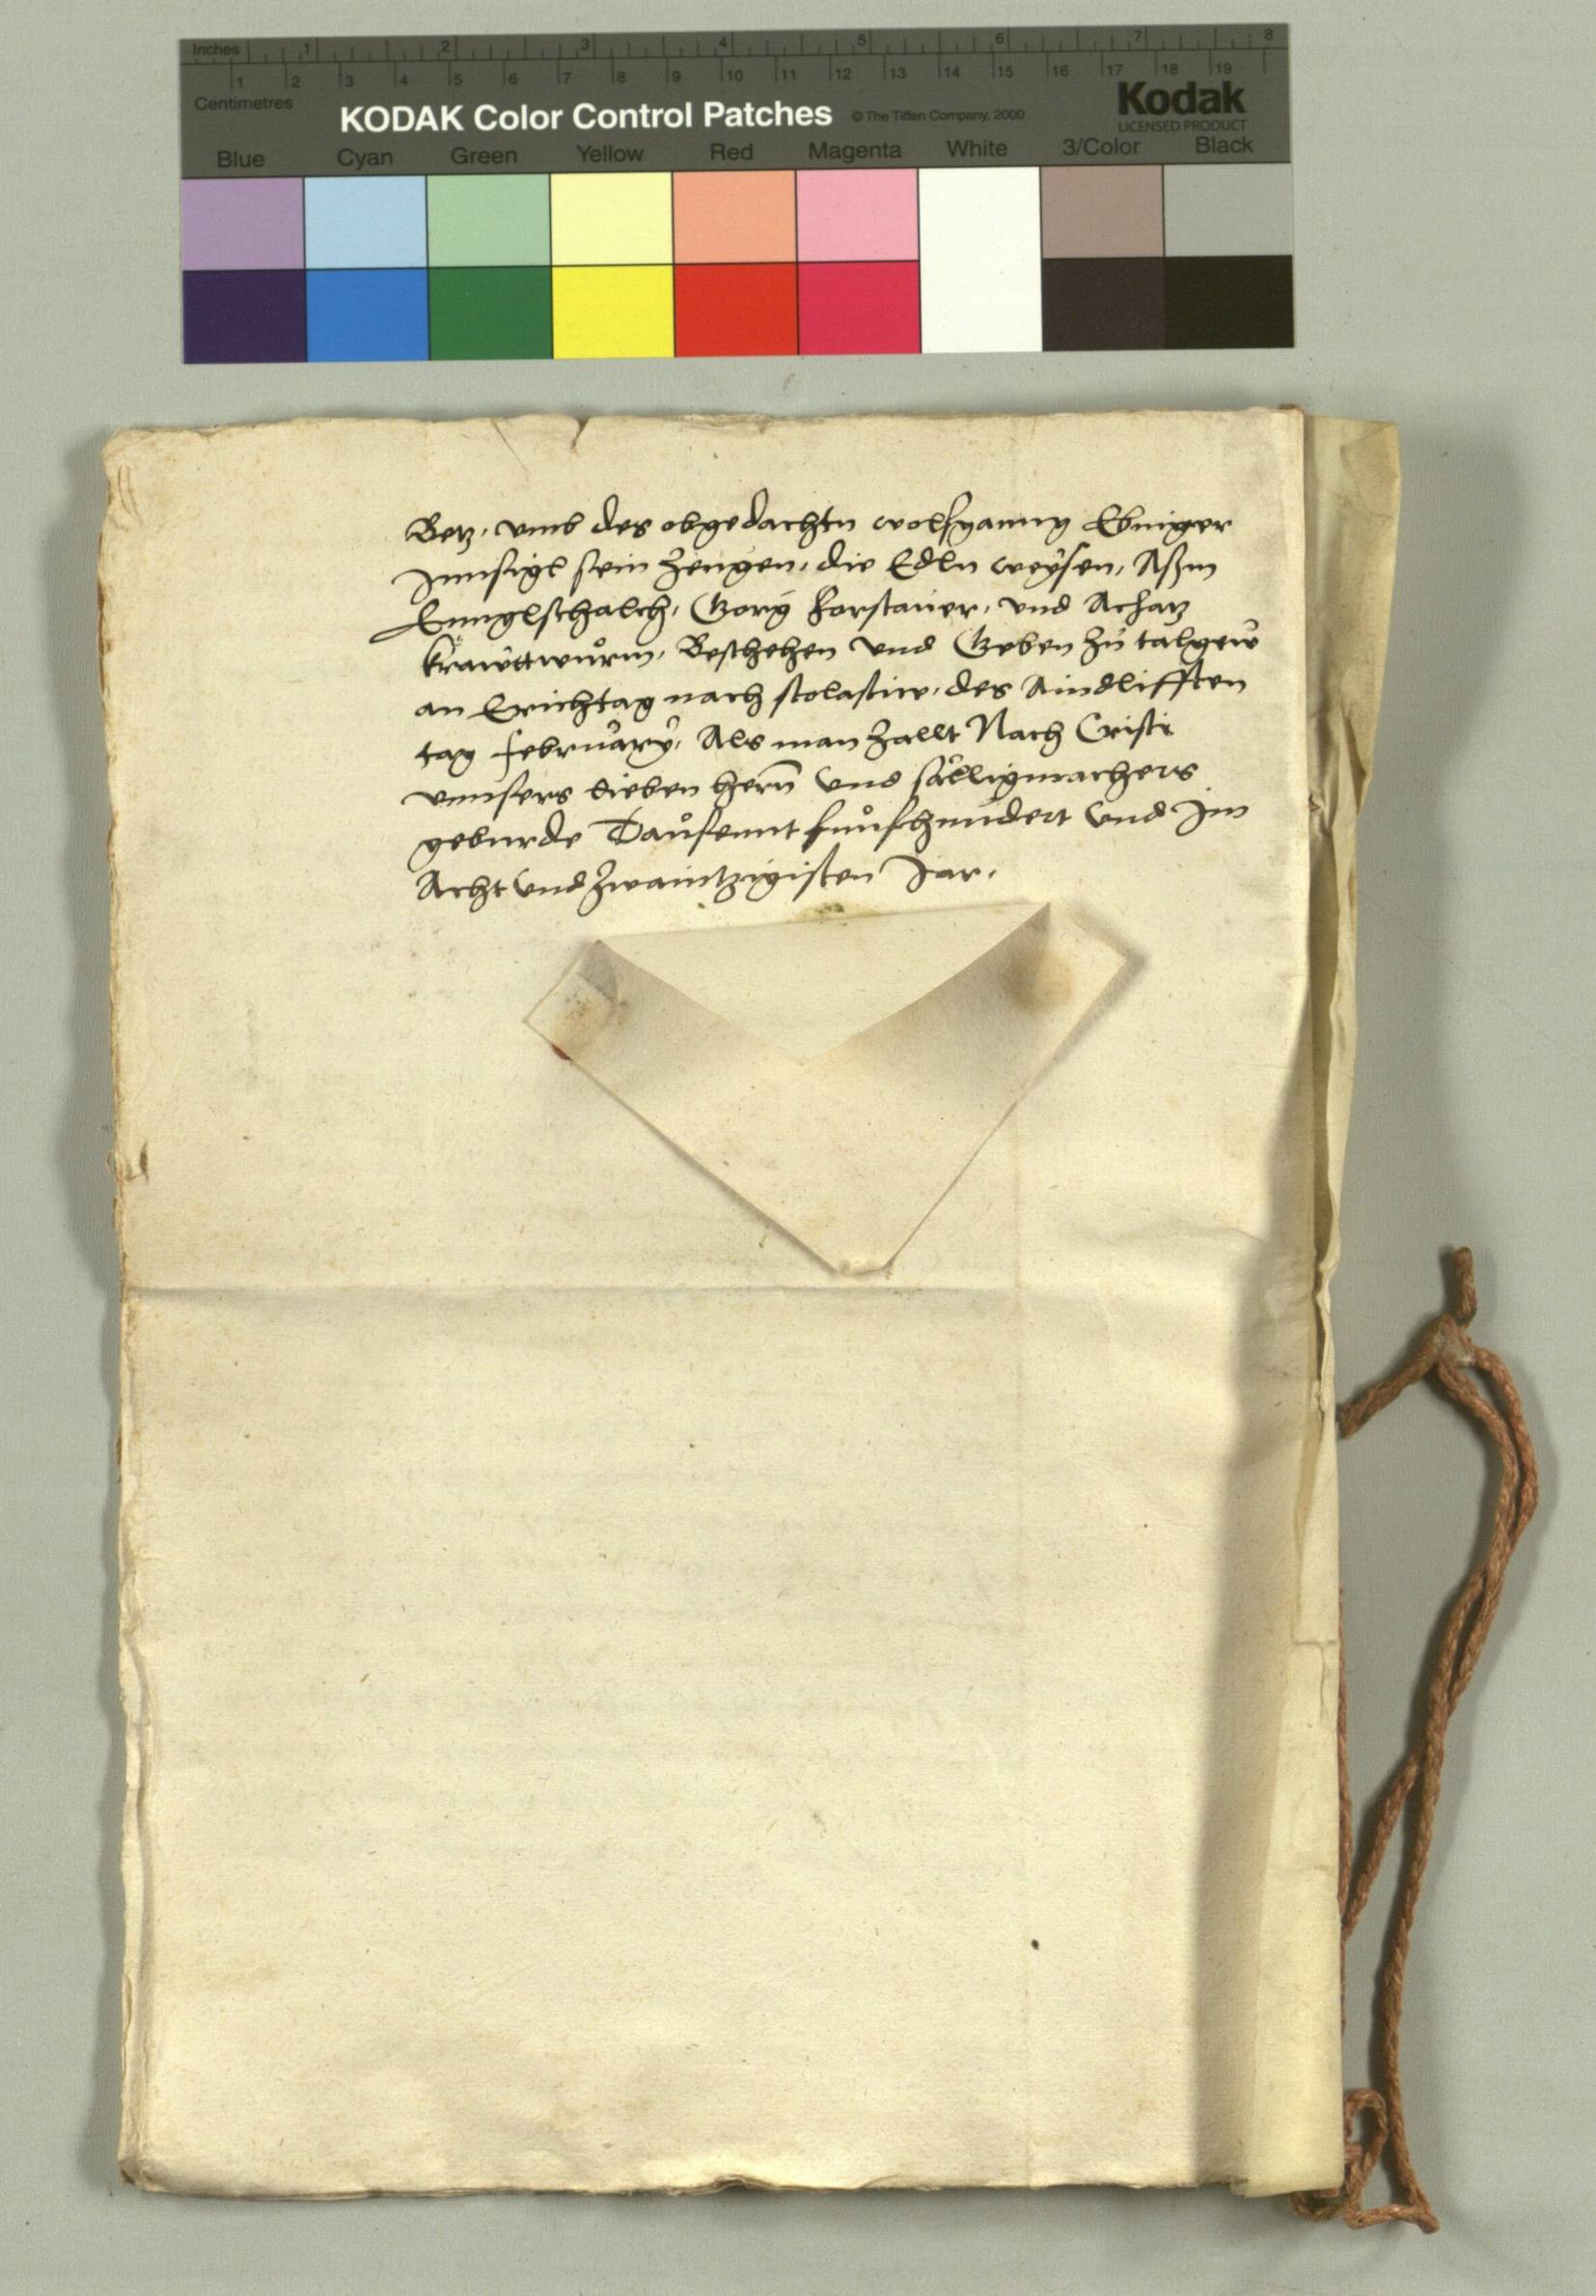 Inches 1 2 3 4 5 6 7 8
1 2 3 4 5 6 7 8 9 10 11 12 13 14 15 16 17 18 19
Centimetres
KODAK Color Control Patches © The Tiffen Company, 2000 Kodak
LICENSED PRODUCT
Blue Cyan Green Yellow Red Magenta White 3/Color Black
Betz, vmb des obgedachtn wolfganng Ebniger
Innsigl sein Zeugen, die Edln weysen, Aßm
Ennglschalch, Georg Forstauer, vnd Achatz
krawttwurm, Beschehen vnd Geben Zu talgew
an Erichtag nach scolastice, des Aindlifften
tag February, Als man Zallt Nach Cristi
vnnsers lieben herrn vnd sälligmachers
geburde Tausennt funfhundert vnd Im
Acht vnd Zwaintzigisten Jar.